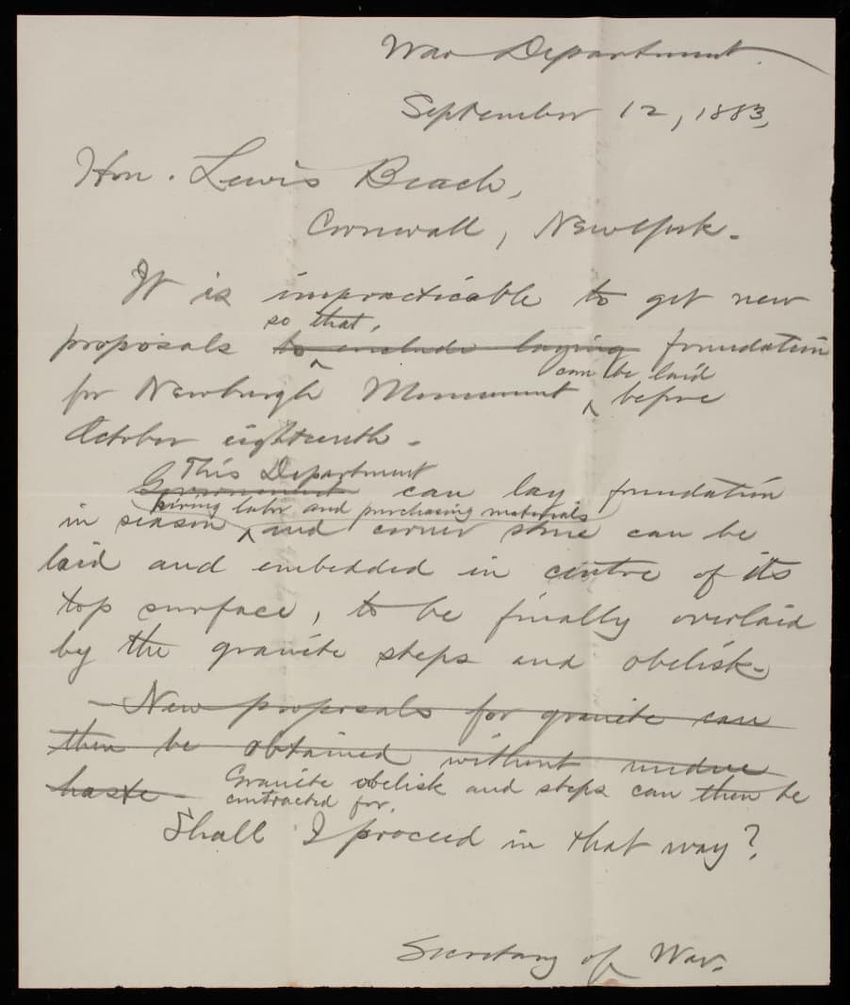 War Department.
September 12, 1883,
Hon. Lewis Beach,
Cornwall, New York.
It is impracticable to get new
so that,
proposals to include laying foundation
can be laid
for Newburgh Monument ^ before
October eighteenth.
This Department
Government can lay foundation
hiring labor and purchasing materials
in season ^ and corner stone can be
laid and embedded in centre of its
top surface, to be finally overlaid
by the granite steps and obelisk.
New proposals for granite can
then be obtained without undue
haste. Granite obelisk and steps can then be
contracted for.
Shall I proceed in that way?
Secretary of War.